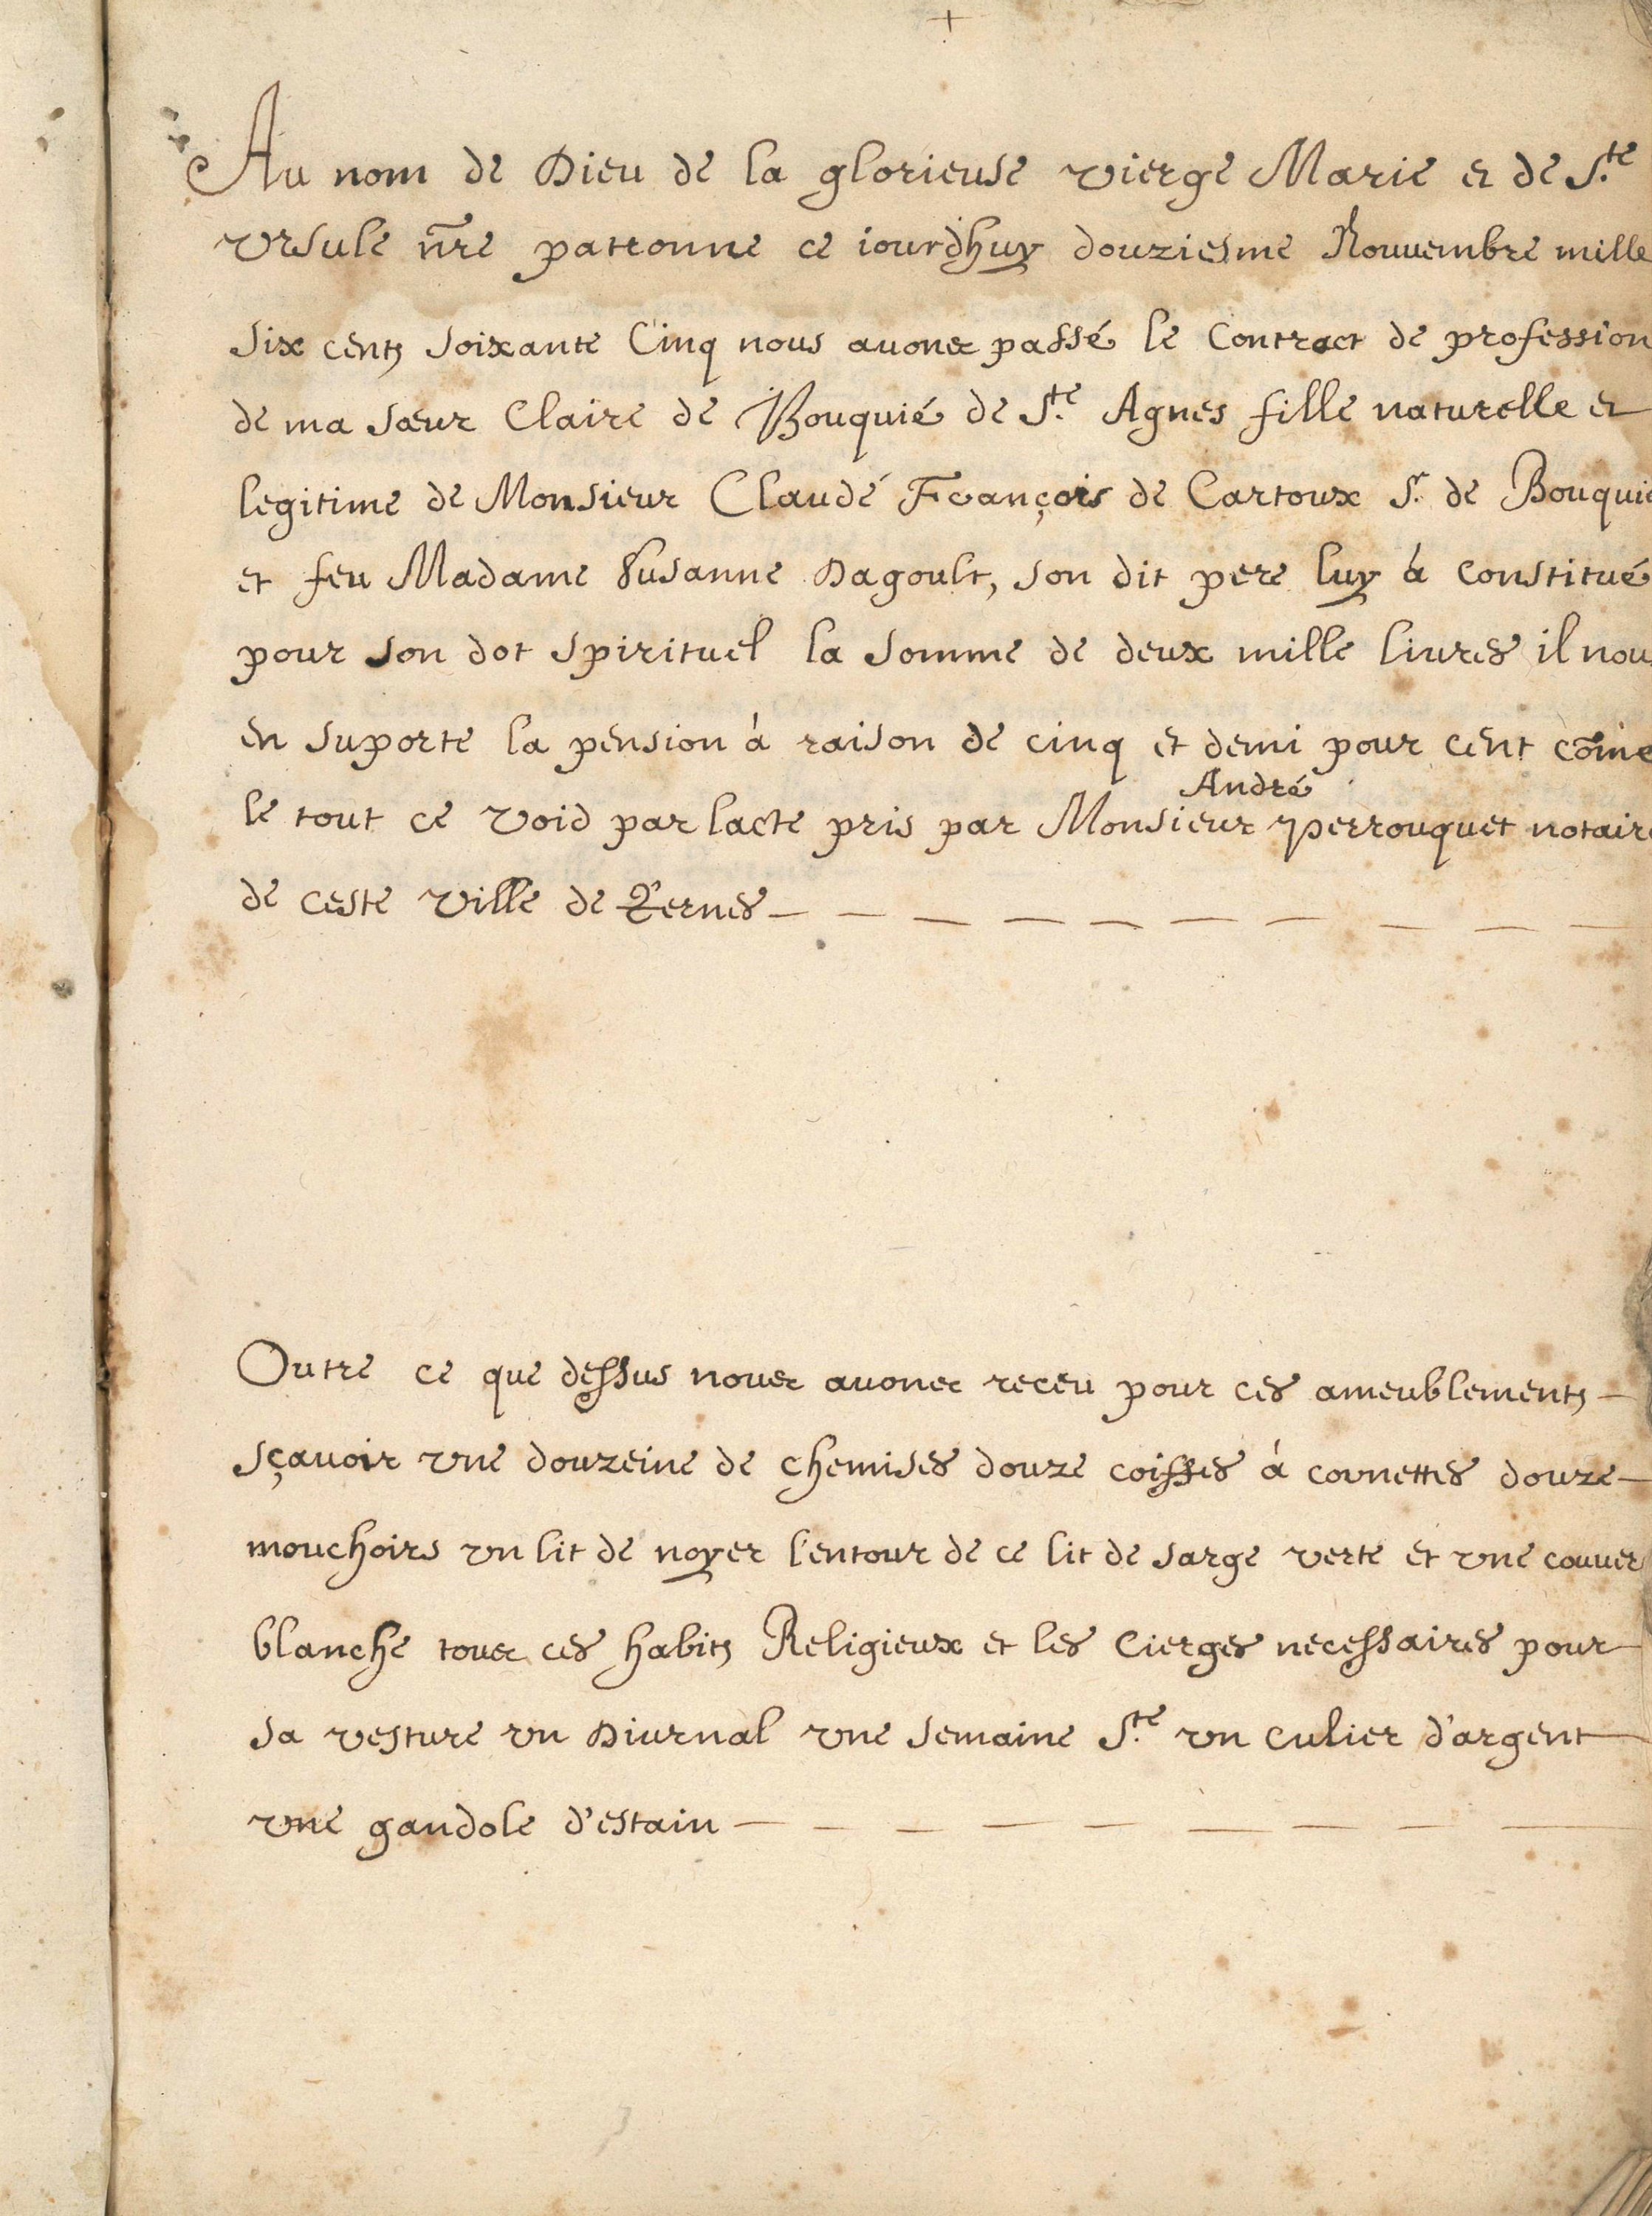 +
Au nom de Dieu de la glorieuse vierge Marie et de S.te
Vrsule ñre patronne ce iourdhuy douziesme Nouvembre mille
six cents soixante Cinq nous auons passé le Contract de profession
de ma sœur Claire de Bouquié de S.te Agnes fille naturelle et
legitime de Monsieur Claudé François de Cartoux S.r de Bouquié
et feu Madame Susanne Dagoult, son dit pere luy à constitué
pour son dot spirituel la somme de deux mille liures il nou
en suporte la pension à raison de cinq et demi pour cent cõme
André
le tout ce void par lacte pris par Monsieur perrouquet notaire
de ceste ville de Pernes
Outre ce que dessus nous auons receu pour ces ameublements
sçauoir vne douzeine de chemises douze coiffes à cornettes douze
mouchoirs vn lit de noyer l'entour de ce lit de sarge verte et vne couuer
blanche tous ces habits Religieux et les Cierges necessaires pour
sa vesture vn Diurnal vne semaine S.te vn culier d'argent
vne gandole d'estain